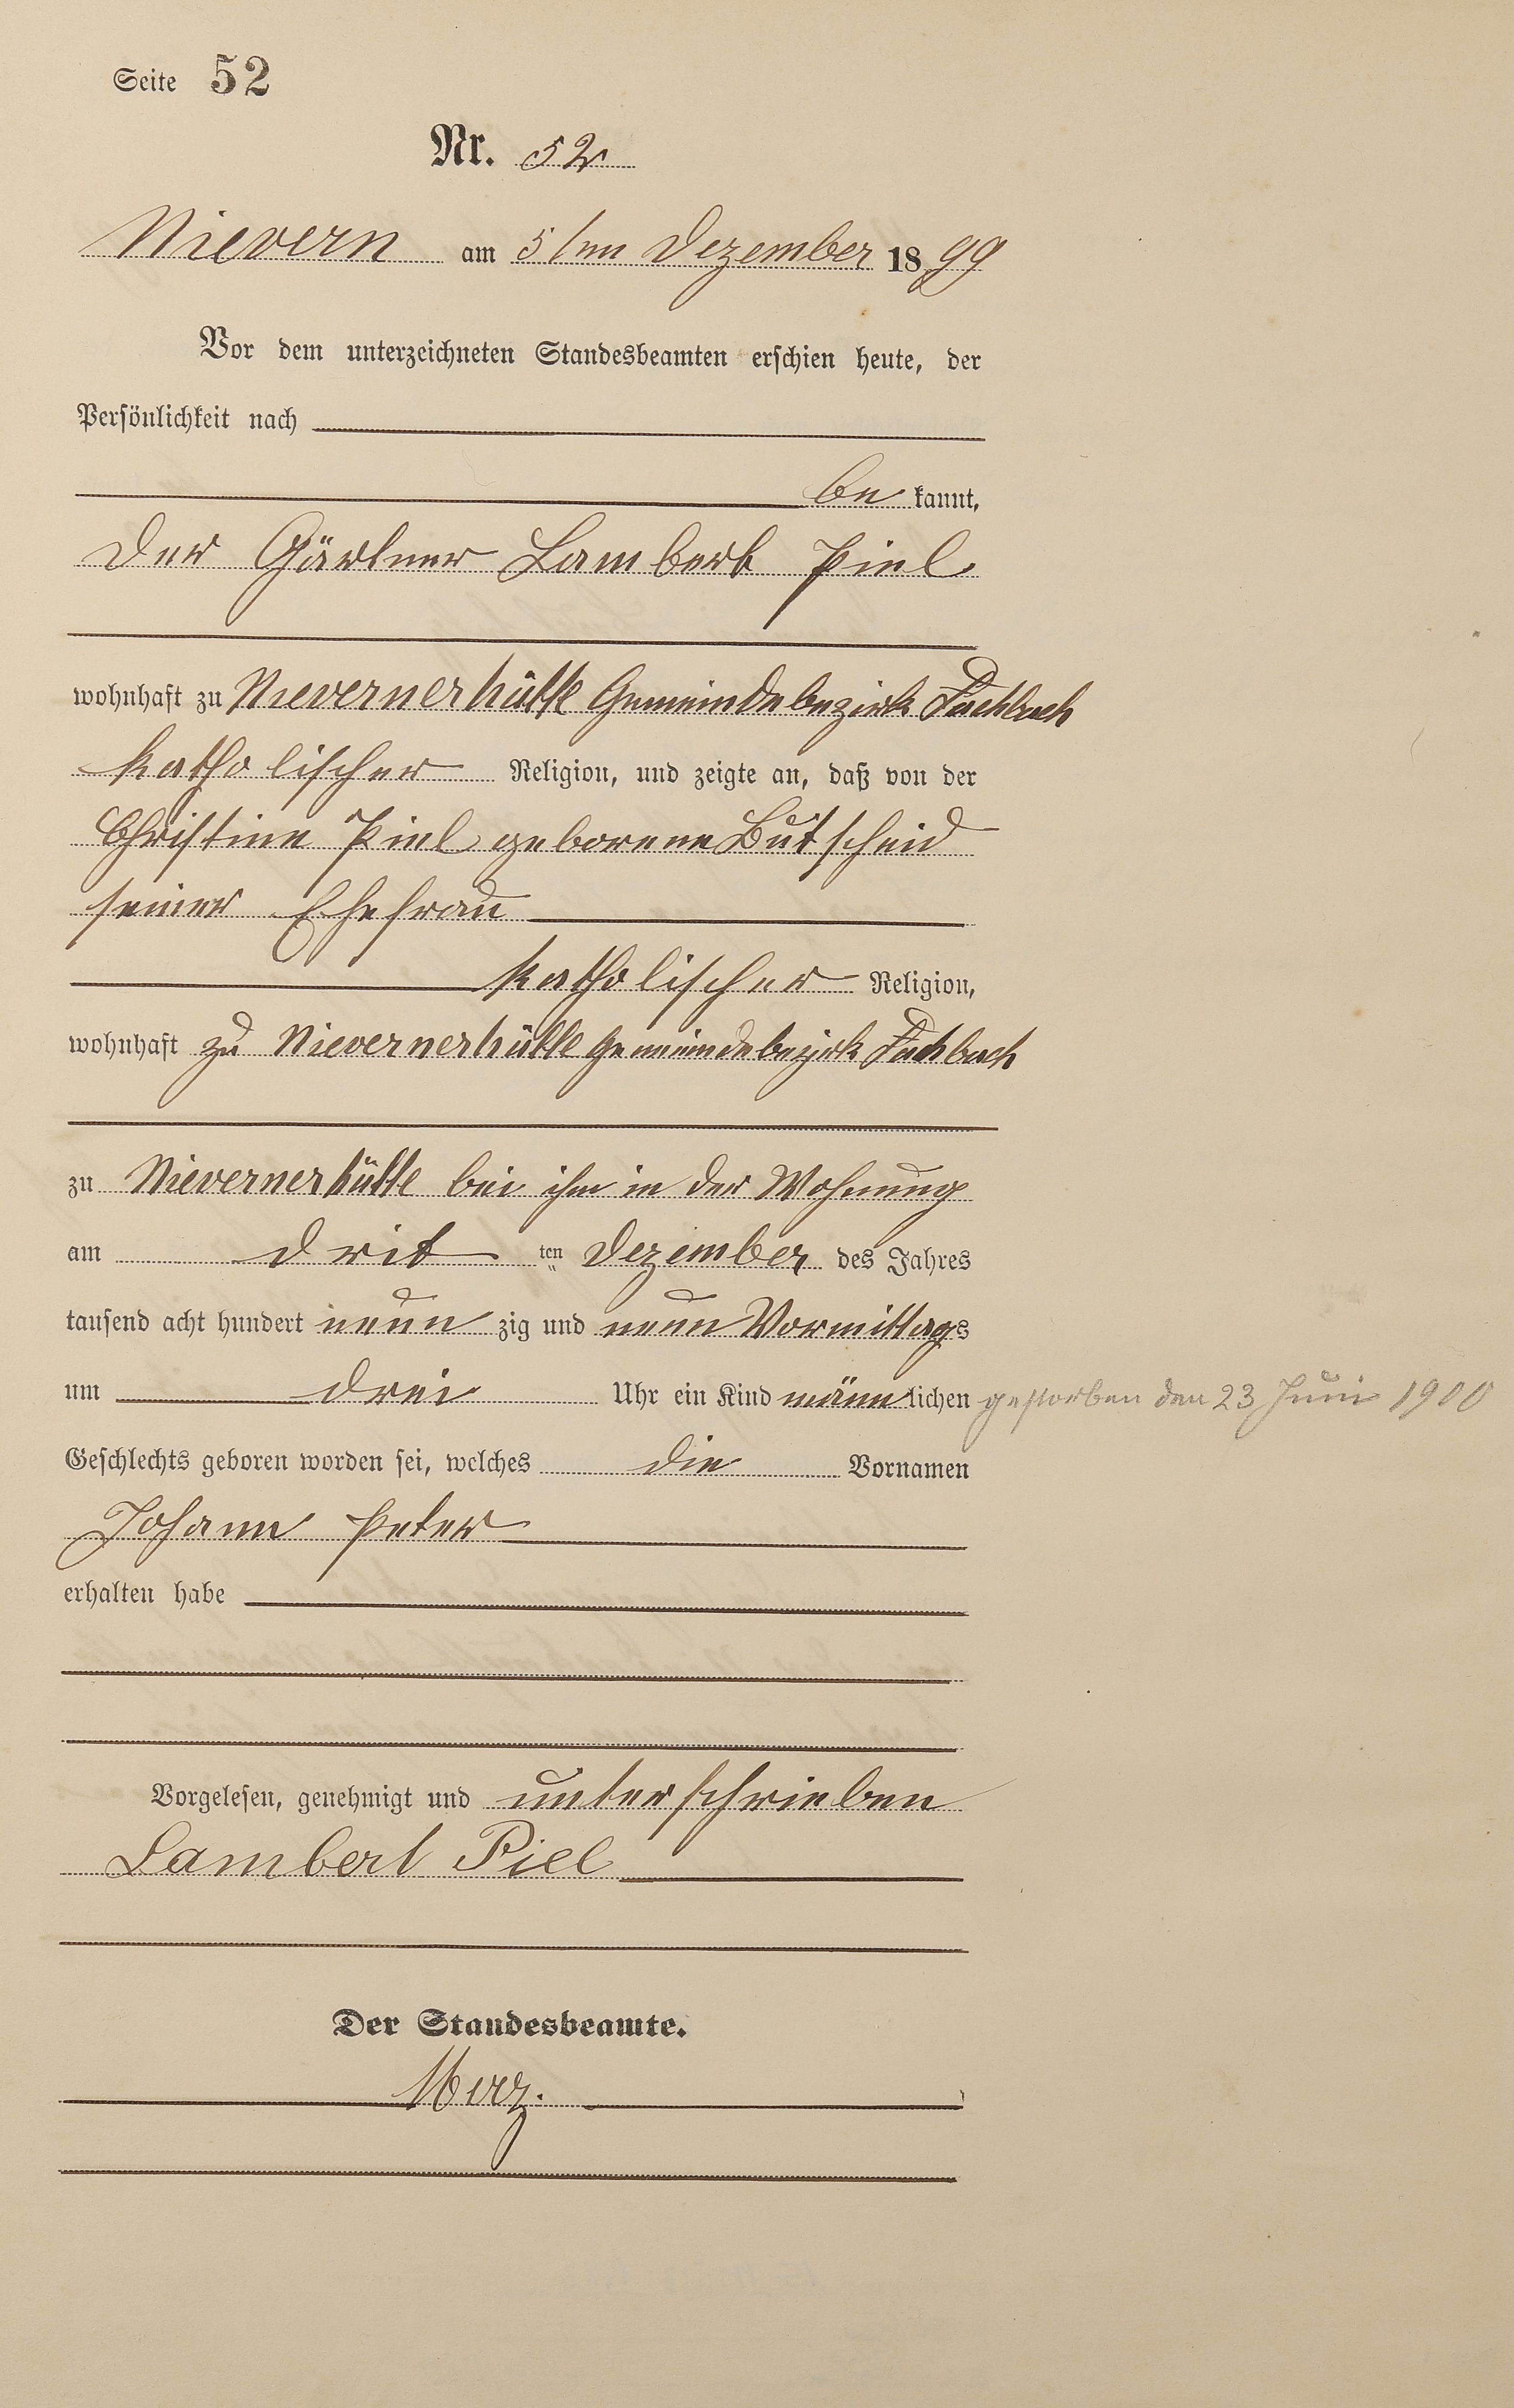 Seite 52
Nr. 52
Nievern am 5ten Dezember 1899
Vor dem unterzeichneten Standesbeamten erschien heute, der
Persönlichkeit nach
be kannt,
der Gärtner Lambert Piel
wohnhaft zu Nievernerhütte Gemeindebezirk Fachbach
katholischer Religion, und zeigte an, daß von der
Christine Piel geborene Butscheid
seiner Ehefrau
katholischer Religion,
wohnhaft zu Nievernerhütte Gemeindebezirk Fachbach
zu Nievernerhütte bei ihm in der Wohnung
am drit ten Dezember des Jahres
tausend acht hundert neun zig und neun Vormittags
um drei Uhr ein Kind männlichen gestorben den 23 Juni 1900
Geschlechts geboren worden sei, welches die Vornamen
Johann Peter
erhalten habe
Vorgelesen, genehmigt und unterschrieben
Lambert Piel
Der Standesbeamte.
Merz.